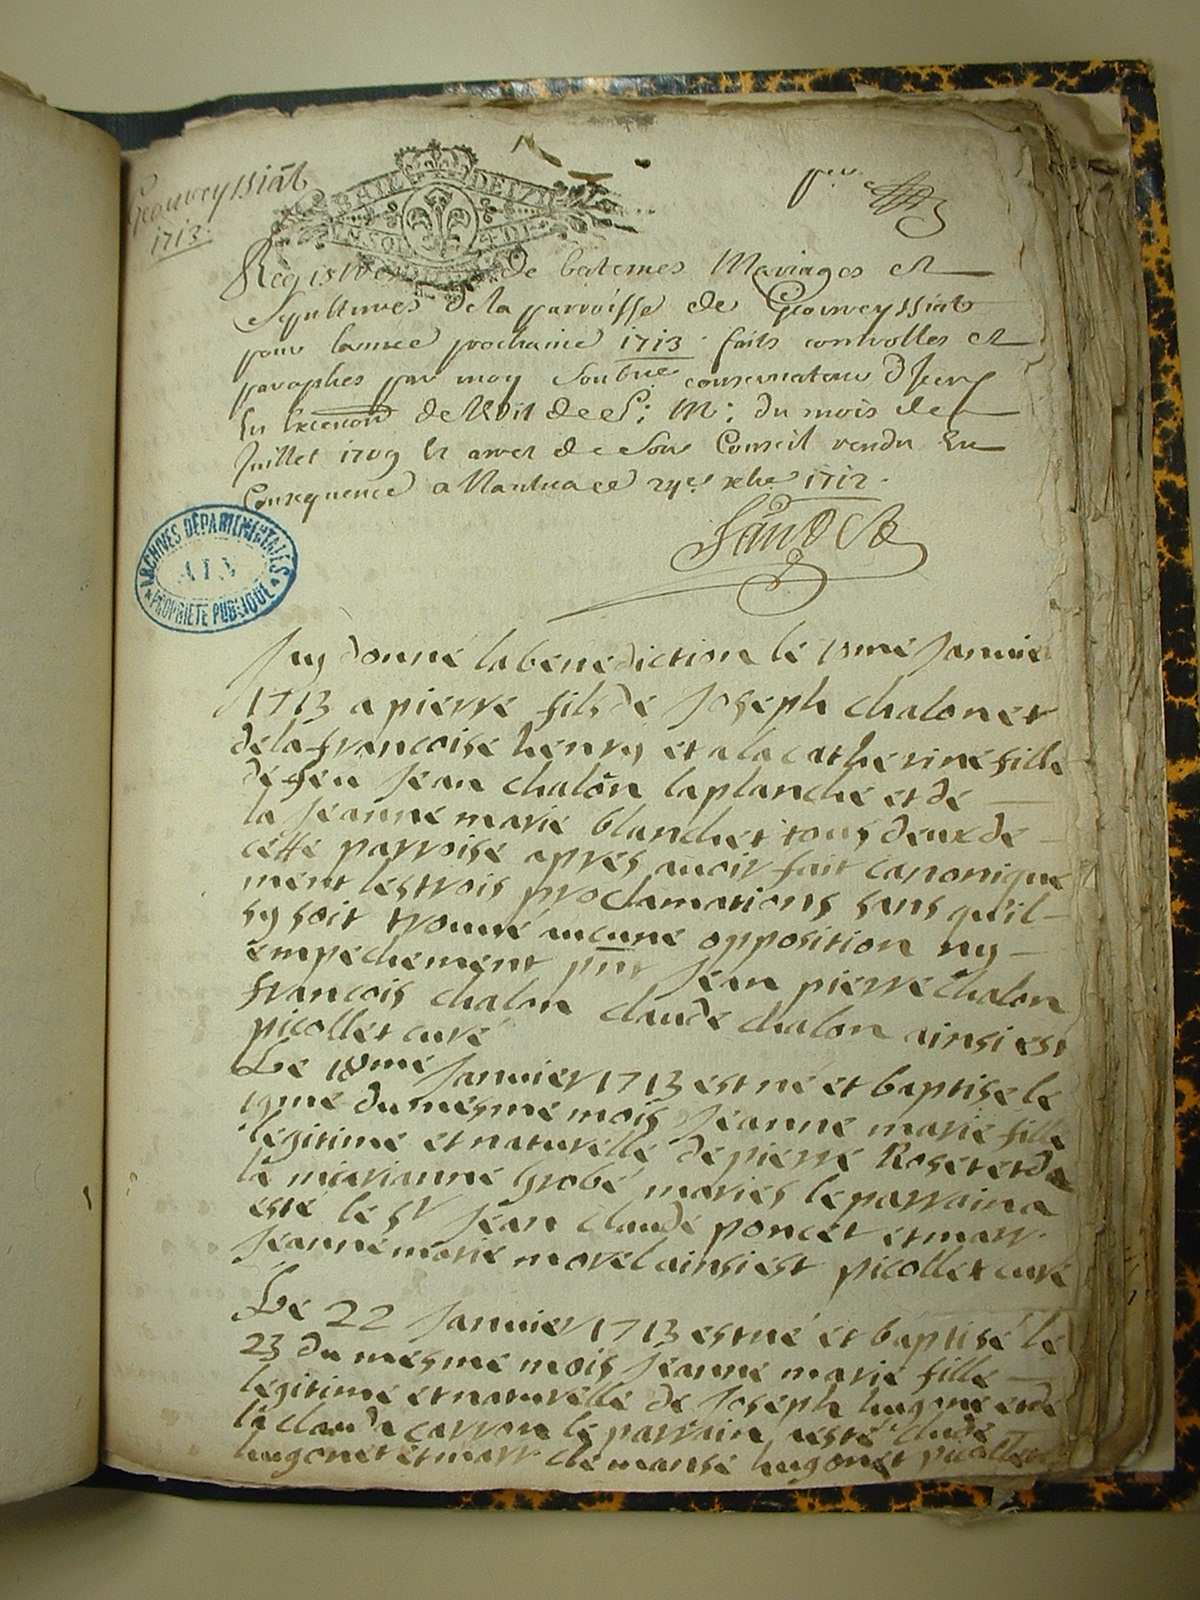 Geauvreyssiat
1713.
Registre de batemes Mariages et
Sepultures de la parroisse de Geauvreyssiat
pour lannee prochaine 1713. faits controlles et
paraphes par moy conservateur
En Execution de Ledit de S: M: du mois de
Juillet 1709 Et arret de Son Conseil rendu En
Consequence a Nantua ce 1712.
ARCHIVES DÉPARTEMENTALES
AIN
PROPRIÉTÉ PUBLIQUE
Jay donné la bénédiction le Janvier
1713 a pierre fils de Joséph chalon et
de la francoise henry et a la cathérine fille
dé feu Jéan chalon laplanché et dé
la Jéanné marié blanchet tous deux de
cette parroisé aprés auoir fait canonique
ment lés trois proclamations sans quil
sy soit trouué aucuné opposition ny
émpéchement pnt Jéan piérré chalon
francois chalon claudé chalon ainsi est
picollet curé
Lé 18mé Janvier 1713 est né et baptisé lé
19mé du mésmé mois Jéanné marié fillé
légitimé et naturéllé dé piérré Rosét et dé
la mérianné grobé mariés lé parrain a
esté lé sr Jéan claudé poncét et marr.
Jéanné marié morél ainsi ést picollet curé
Lé 22 Janvier 1713 est né ét baptisé lé
23 du mésmé mois Jéanné marié fillé
légitimé et naturéllé dé Joséph hugonét et dé
la clauda carron lé parrain a esté cludé
hugonét et marr clémansé hugonét picollet